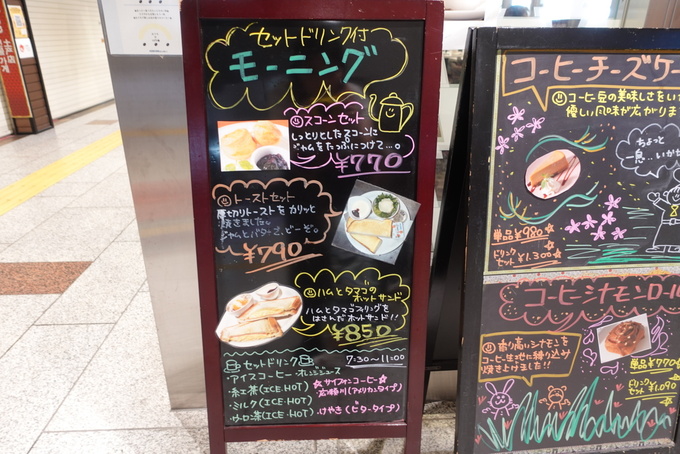 セットドリンク付
モーニング
スコーンセット
しっとりとしたスコーンに
ジャムをたっぷにつけて…。
¥770
トーストセット
厚切りトーストをカリッと
焼きました。
ジャムとバターと、どーぞ。
¥790
ハムとタマゴの
ホットサンド
ハムとタマゴフィリングを
はさんだホットサンド!!
¥850
7:30〜11:00
セットドリンク
・アイスコーヒー・オレンジジュース
・紅茶(ICE・HOT)
・ミルク(ICE・HOT)
(ICE・HOT)
☆サイフォンコーヒー☆
(アメリカンタイプ)
・けやき(ビタータイプ)
コーヒーチーズケー
コーヒー豆の美味しさをい
優しい風味が広がりま
ちょっと
一息、いかが
単品¥980
ドリンク
セット¥1,300
コーヒーシナモンロール
香り高いシナモンを
コーヒー生地に練り込み
焼き上げました!!
単品¥770
ドリンク
セット¥1,090